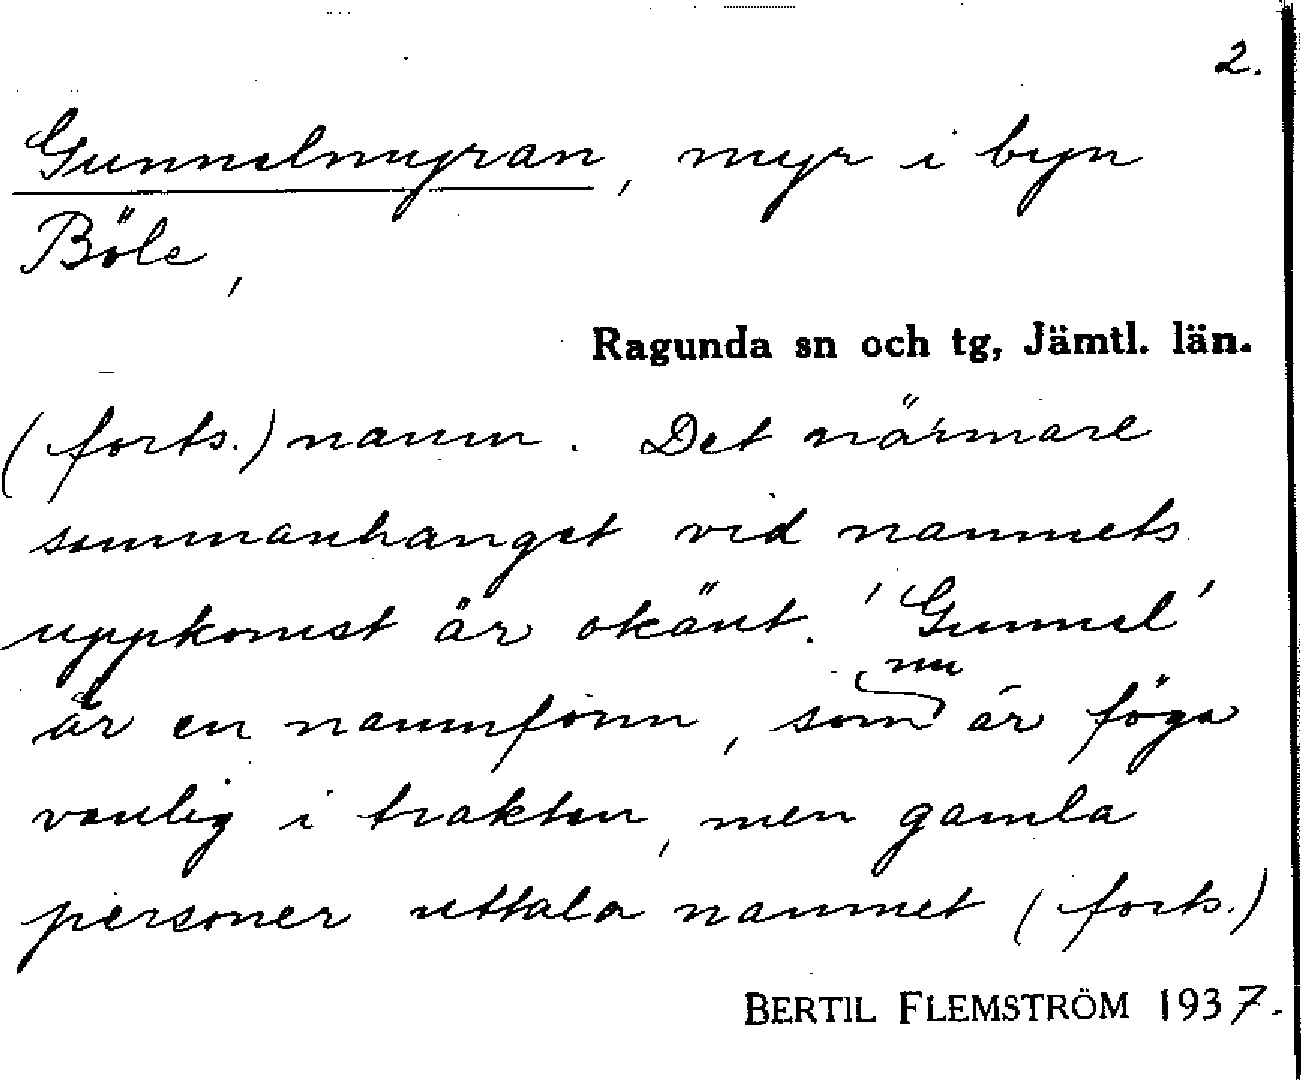 2.
Gunnelmyran, myr i byn
Böle,
Ragunda sn och tg, Jämtl. län.
(forts.) namn. Det närmare
sammanhanget vid namnets
uppkomst är okänt. 'Gunnel'
är en namnform, som nu är föga
vanlig i trakten, men gamla
personer uttala namnet (forts.)
BERTIL FLEMSTRÖM 1937.